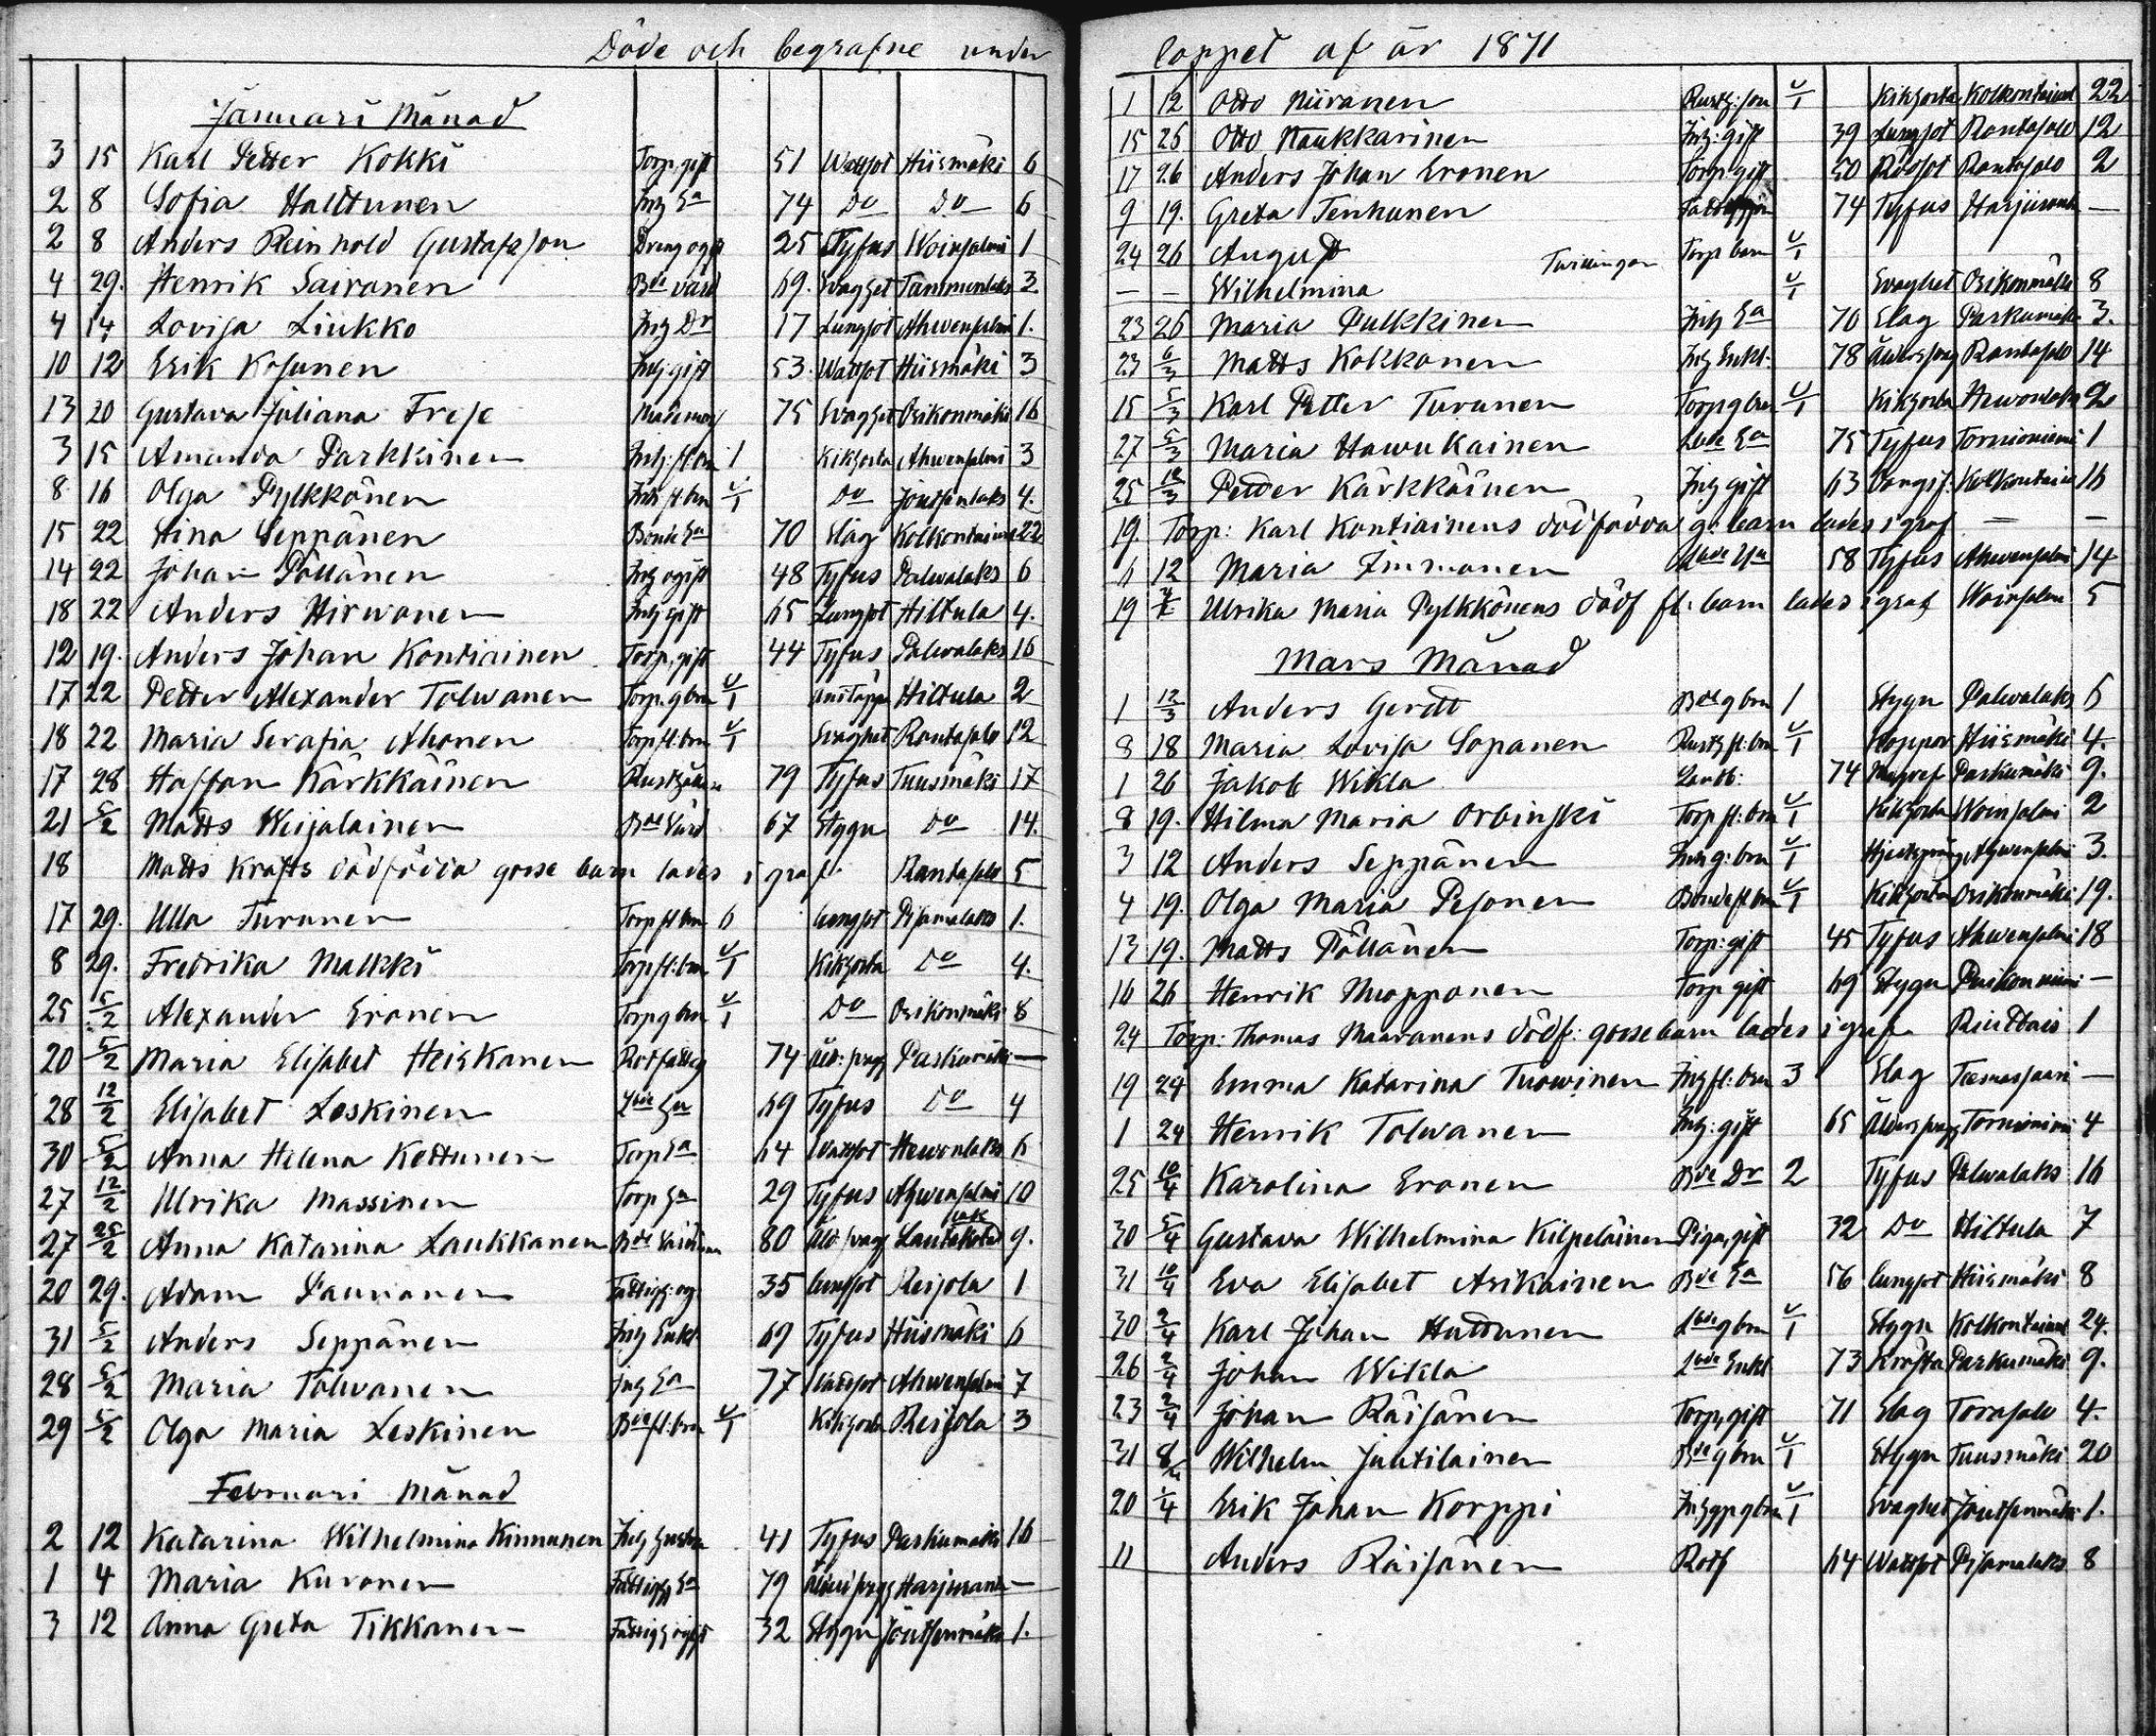 Döde och begrafne under
Januari Månad
3 15 Karl Petter Kokki Torp. gift 51 Wattsot Hiismäki 6
2 8 Sofia Halttunen Inh Ea 74 Do Do 6
2 8 Anders Reinhold Gustafsson Dreng ogift 25 Tyfus Woinsalmi 1
4 29. Henrik Sairanen Bde värd 69. Svaghet 3
4 14 Lovisa Liukko Inh Dr 17 Lungsot Ahwensalmi 1.
10 12 Erik Kosunen Inh: gift 53. Wattsot Hiismäki 3
13 20 Gustava Juliana Frese 75 Svaghet Osikonmäki 16
3 15 Amanda Parkkinen 1 Kikhosta Ahwensalmi 3
8. 16 Olga Pylkkönen Inh fl. brn u/1 Do Joutsenlaks 4.
15 22 Stina Seppänen Bonde Ea 70 Slag Kolkontaival 22
14 22 Johan Pöllänen Inh ogift 48 Tyfus Palvalaks 6
18 22 Anders Hirvonen Inh gift 65 Lungsot Hiltula 4.
12 19. Anders Johan Kontiainen Torp. gift 44 Tyfus Palvalaks 16
17 22 Petter Alexander Tolwanen Torp. g brn u/1 Hiltula 2
18 22 Maria Serafia Ahonen Torp fl. brn u/1 Svaghet Rantasalo 12
17 28 Staffan Kärkkäinen 79 Tyfus Tuusmäki 17
21 5/2 Matts Weijalainen Bde Värd 67 Stygn Do 14.
18 Matts Krafts dödfödda gosse barn lades i graf. Rantasalo 5
17 29. Ulla Turunen Torp fl brn 6 Lungsot Pisamalaks 1.
8 29. Fredrika Malkki Torp fl: brn u/1 Kikhosta Do 4.
25 5/2 Alexander Eronen Torp g brn u/1 Do Osikonmäki 8
20 5/2 Maria Elisabet Heiskanen Rotfattig 74 Paskumäki —
28 12/2 Elisabet Leskinen Lbde Ea 69 Tyfus Do 4
30 5/2 Anna Helena Kettunen Torp Ea 64 Wattsot Hewonlaks 6
27 12/2 Ulrika Massinen Torp Ea 29 Tyfus Ahwensalmi 10
27 25/2 Anna Katarina Laukkanen 80 9.
20 29. Adam Paunonen 35 Lungsot Reijola 1
31 5/2 Anders Seppänen Inh Enkl 69 Tyfus Hiismäki 6
28 5/2 Maria Tolwanen Inh Ea 77 Wattsot Ahwensalmi 7
29 5/2 Olga Maria Leskinen Bde fl: brn u/1 Kikhosta Reijola 3
Februari Månad
2 12 Katarina Wilhelmina Kinnunen Inh hustru 41 Tyfus Paskumäki 16
1 4 Maria Kuronen 79 Harjuranta —
3 12 Anna Greta Tikkanen 32 Stygn Joutsenmäki 1.
loppet af år 1871
1 12 Otto Niiranen u/1 Kikhosta Kolkontaival 22
15 25 Otto Naukkarinen Inh: gift 39 Lungsot Rantasalo 12
17 26 Anders Johan Eronen Torp gift 50 Rödsot Rantasalo 2
9 19. Greta Tenhunen 74 Tyfus Harjuranta —
24 26 August Tvillingar Torp barn u/1
— — Wilhelmina u/1 Svaghet Osikonmäki 8
23 26 Maria Pulkkinen Inh Ea 70 Slag Paskumäki 3.
23 6/3 Matts Kokkonen Inh Enkl: 78 Rantasalo 14
15 5/3 Karl Petter Turunen Torp g brn u/1 Kikhosta Hewonlaks 2
27 5/3 Maria Hawukainen Lbde Ea 75 Tyfus Tornioniemi 1
25 12/3 Petter Kärkkäinen Inh gift 63 Kolkontaival 16
19. Torp: Karl Kontiainens dödfödda g: barn lades i graf — —
6 12 Maria Immonen 58 Tyfus Ahwensalmi 14
19 Ulrika Maria Pylkkönens dödf fl: barn lades i graf Woinsalmi 5
Mars Månad
1 12/3 Anders Gerdt Bde g brn 1 Stygn Palvalaks 6
8 18 Maria Lovisa Sopanen Rusth fl: brn u/1 Koppor Hiismäki 4.
1 26 Jakob Wikla Landb: 74 Paskumäki 9.
8 19. Hilma Maria Orbinski Torp fl: brn u/1 Kikhosta Woinsalmi 2
3 12 Anders Seppänen Inh g: brn u/1 Ahwensalmi 3.
4 19. Olga Maria Pesonen Bonde fl brn u/1 Kikhosta Osikonmäki 19.
13 19. Matts Pöllänen Torp: gift 45 Tyfus Ahwensalmi 18
16 26 Henrik Muopponen Torp gift 69 Stygn —
24 Torp: Thomas Maaranens dödf: gossebarn lades i graf 1
19 24 Emma Katarina Tuowinen Inh fl: brn 3 Slag —
1 24 Henrik Tolwanen Inh: gift 65 Tornioniemi 4
25 10/4 Karolina Eronen Bde Dr 2 Tyfus Palvalaks 16
30 5/4 Gustava Wilhelmina Kilpeläinen Piga, gift 32 Do Hiltula 7
31 10/4 Eva Elisabet Asikainen Bde Ea 56 Lungsot Hiismäki 8
30 2/4 Karl Johan Huttunen Lbde g brn u/1 Stygn Kolkontaival 24.
26 2/4 Johan Wikla Lbde Enkl 73 Kräfta Paskumäki 9.
23 2/4 Johan Räisänen Torp, gift 71 Slag Torasalo 4.
31 8/4 Wilhelm Juutilainen Bde g brn u/1 Stygn Tuusmäki 20
20 1/4 Erik Johan Korppi u/1 Svaghet Joutsenmäki 1.
11 Anders Räisänen Rotf 64 Wattsot Pisamalaks 8